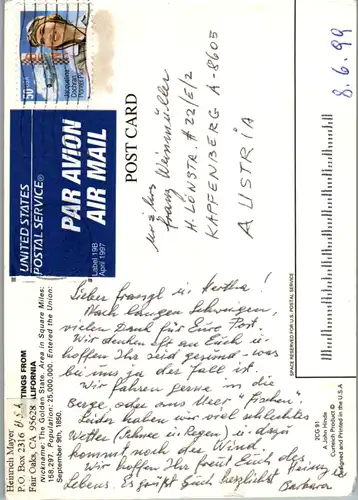 8.6.99
50
Jacqueline
Cochran
Pioneer Pilot
UNITED STATES
POSTAL SERVICE®
PAR AVION
AIR MAIL
Label 19B
April 1997
POST CARD
Franz Weinmüller
H. LÖNSTR. # 22/E/2
KAPFENBERG A-8605
AUSTRIA
Heinrich Mayer
P.O. Box 2316 USA
Fair Oaks, CA 95628
TINGS FROM
ALIFORNIA
Nickname: The Golden State. Area in Square Miles:
158,297. Population: 25,000,000. Entered the Union:
September 9th, 1850.
Lieber Franzl u. Hertha!
Nach langem Schweigen,
vielen Dank für Eure Post.
Wir denken oft an Euch u.
hoffen Ihr seid gesund - was
bei uns ja der Fall ist.
Wir fahren gerne in die
Berge, oder ans Meer "fischen".
Leider haben wir viel schlechtes
Wetter (Schnee u. Regen) u. dazu
kommt noch der Wind.
Wir hoffen Ihr freut Euch des
Lebens. Es grüßt Euch herzlichst
Heiny
Barbara
SPACE RESERVED FOR U.S. POSTAL SERVICE
2CG 91
A John Hinde
Curteich Product ©
Designed and Printed in the U.S.A.